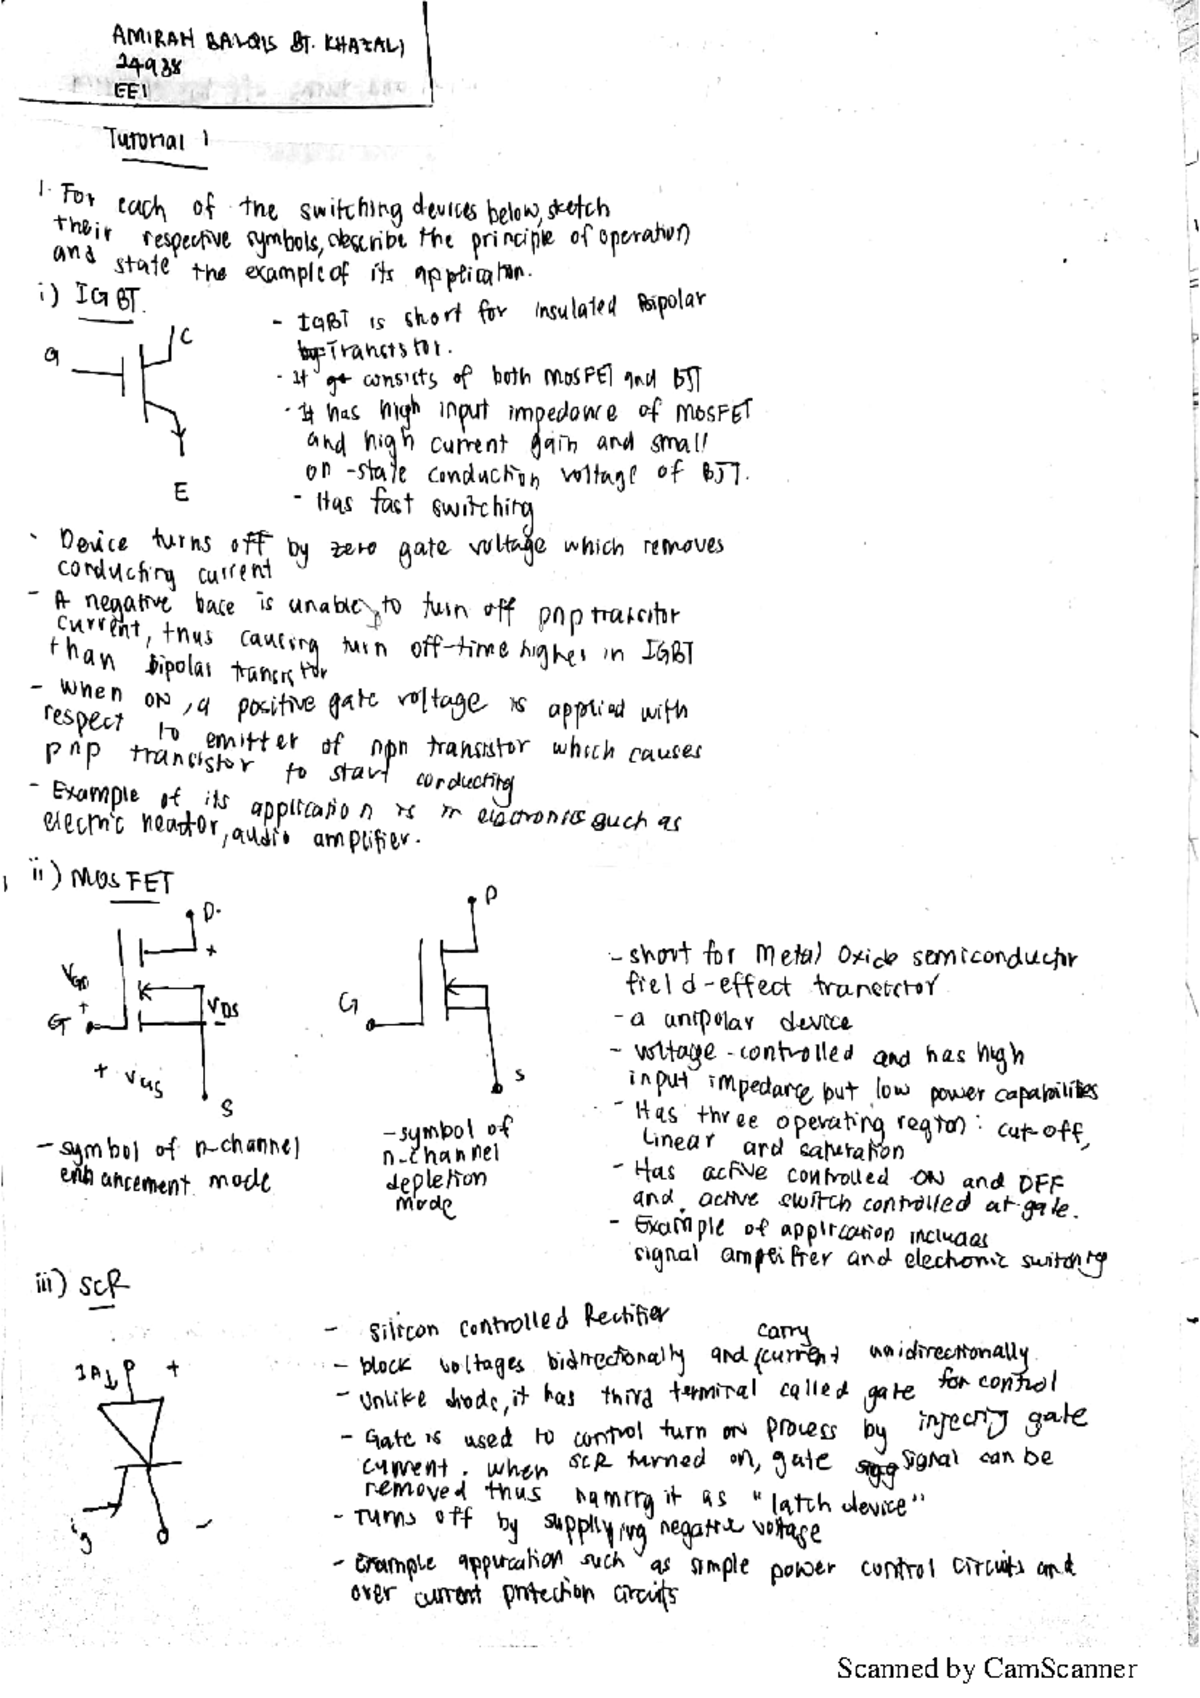 AMIRAH BALQIS BT. KHAZALI
24938
EEI
Tutorial 1
1. For each of the switching devices below, sketch
their respective symbols, describe the principle of operation
and state the example of its application.
i) IGBT.
G
C
E
- IGBT is short for insulated Bipolar
Transistor.
- It consists of both MOSFET and BJT
- It has high input impedance of MOSFET
and high current gain and small
on-state conduction voltage of BJT.
- Has fast switching
- Device turns off by zero gate voltage which removes
conducting current
- A negative base is unable to turn off pnp transistor
current, thus causing turn off-time higher in IGBT
than bipolar transistor
- when ON, a positive gate voltage is applied with
respect to emitter of npn transistor which causes
pnp transistor to start conducting
- Example of its application is in electronics such as
electric heator, audio amplifier.
ii) MOSFET
D.
+
VGD
+
G
VDS
-
+ VGS
S
- symbol of n-channel
enhancement mode
D
G
S
- symbol of
n-channel
depletion
mode
- short for Metal Oxide semiconductor
field-effect transistor
- a unipolar device
- voltage-controlled and has high
input impedance but low power capabilities
- Has three operating region: cut-off,
linear and saturation
- Has active controlled ON and OFF
and active switch controlled at gate.
- Example of application includes
signal amplifier and electronic switching
iii) SCR
IA↓ P +
ig
-
- silicon controlled Rectifier
- block voltages bidirectionally and carry (current) unidirectionally
- Unlike diode, it has third terminal called gate for control
- Gate is used to control turn on process by injecting gate
current. when SCR turned on, gate signal can be
removed thus naming it as "latch device"
- Turns off by supplying negative voltage
- Example application such as simple power control circuits and
over current protection circuits
Scanned by CamScanner